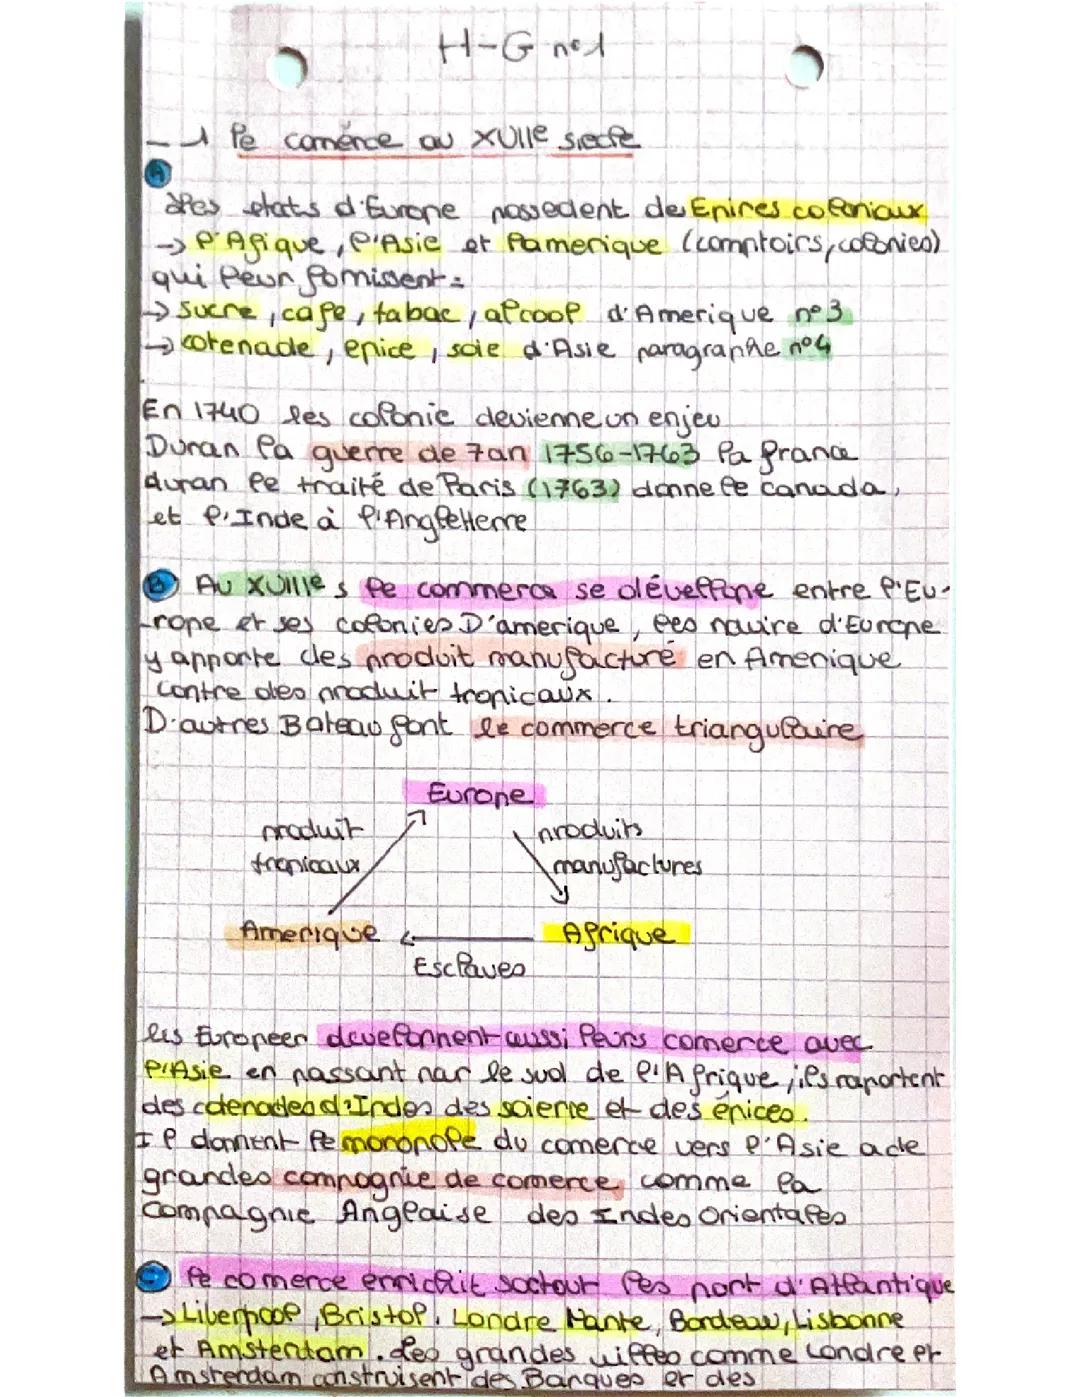 H-G n°1
1 le comérce au XVIIIe siecle
A
des etats d'Europe possedent des Enpires coloniaux
-> l'Afique, l'Asie et lamerique (comptoirs, colonies)
qui leur fornissent :
-> sucre, cafe, tabac, alcool d'Amerique n°3
-> cotenade, epice, soie d'Asie paragraphe n°4
En 1740 les colonie devienne un enjeu
Duran la guerre de 7an 1756-1763 la france
duran le traité de Paris (1763) donne le canada,
et l'Inde à l'Angleterre
B Au XVIIIe s le commerce se dévellope entre l'Eu-
rope et ses colonies D'amerique, les navire d'Europe
y apporte des produit manufacturé en Amerique
contre des produit tropicaux.
D'autres Bateau font le commerce triangulaire
Europe
produit
tropicaux
produits
manufactures
Amerique
Afrique
Esclaves
les Europeen developpent aussi leurs comerce avec
l'Asie en passant par le sud de l'Afrique, ils raportent
des cotenades d'Indes des soierie et des épices.
Il donnent le monopole du comerce vers l'Asie a de
grandes compagnie de comerce, comme la
Compagnie Anglaise des Indes Orientales
C le comerce enrichit soctout les port d'Atlantique
-> Liberpool, Bristol, Londre Nante, Bordeau, Lisbonne
et Amsterdam. Les grandes villes comme Londre et
Amsterdam construisent des Banques et des